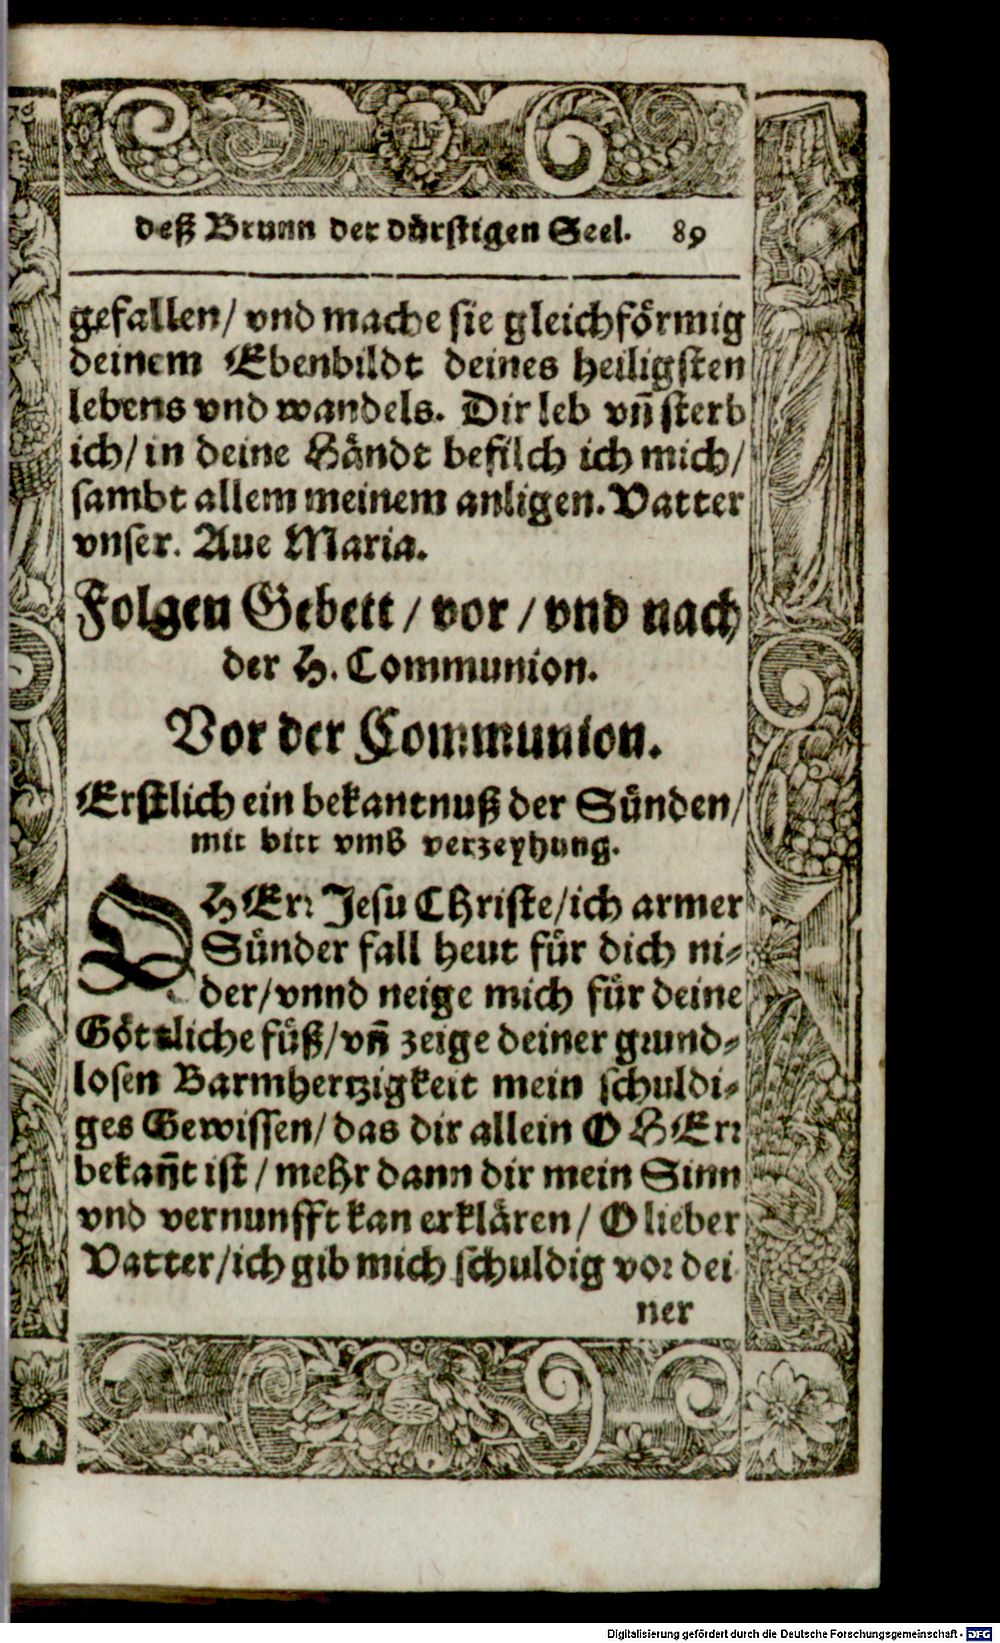 deß Brunn der dürstigen Seel. 89
gefallen/ vnd mache sie gleichförmig
deinem Ebenbildt deines heiligsten
lebens vnd wandels. Dir leb vñ sterb
ich/ in deine Händt befilch ich mich/
sambt allem meinem anligen. Vatter
vnser. Aue Maria.
Folgen Gebett / vor / vnd nach
der H. Communion.
Vor der Communion.
Erstlich ein bekantnuß der Sünden/
mit bitt vmb verzeyhung.
O HErr Jesu CHriste/ich armer
Sünder fall heut für dich ni-
der/vnnd neige mich für deine
Göttliche füß/vñ zeige deiner grund-
losen Barmhertzigkeit mein schuldi-
ges Gewissen/das dir allein O HErr
bekañt ist / mehr dann dir mein Sinn
vnd vernunfft kan erklären / O lieber
Vatter/ich gib mich schuldig vor dei
ner
Digitalisierung gefördert durch die Deutsche Forschungsgemeinschaft - DFG